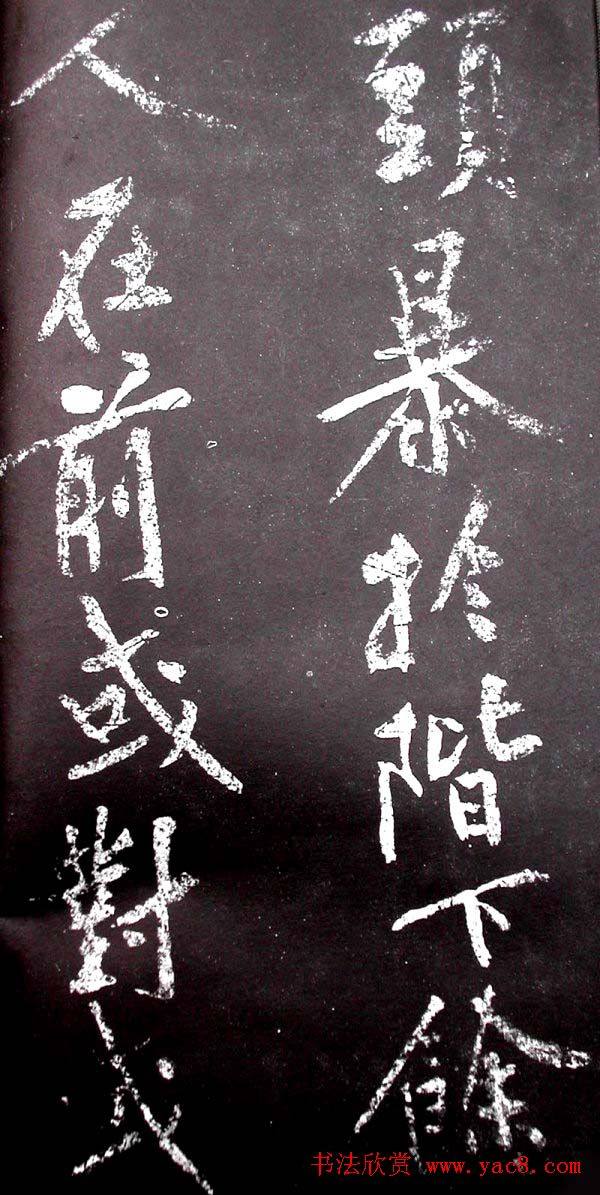 頭暴於階下餘
人在前或對或
书法欣赏 www.yac8.com